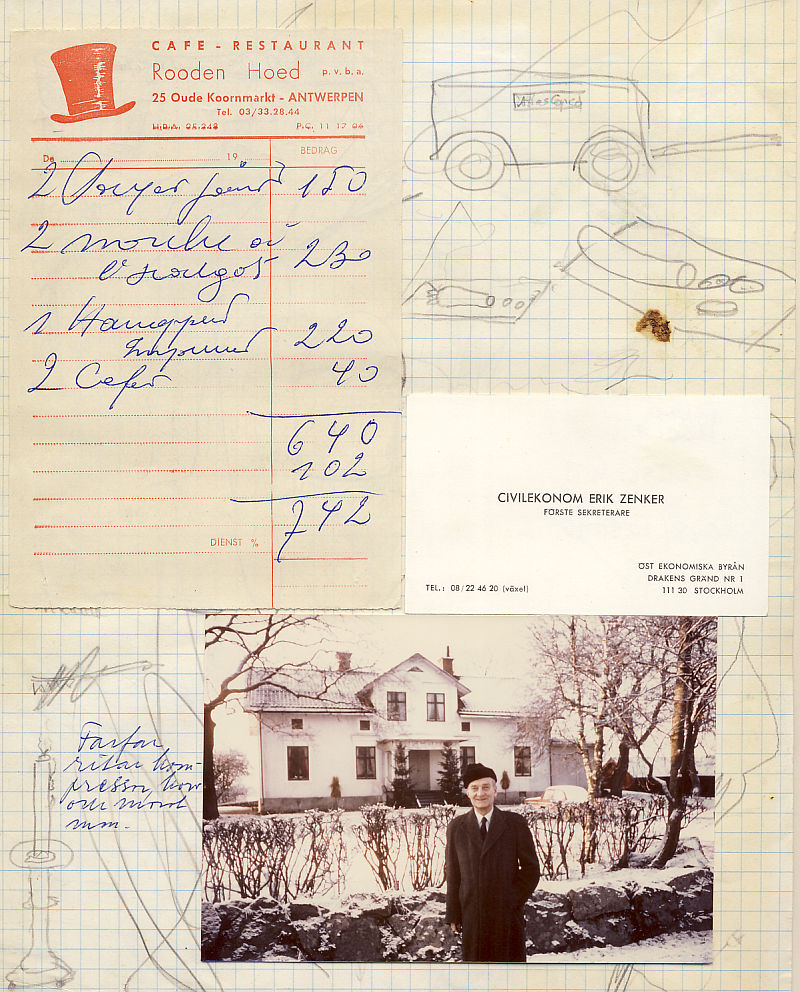 CAFE - RESTAURANT
Rooden Hoed p.v.b.a.
25 Oude Koornmarkt - ANTWERPEN
Tel. 03/33.28.44
H.D.A. 25.248 P.C. 11 17 06
De 19 BEDRAG
2 150
2 moules à
l'escargot 230
1
220
2 Cafés 40
640
102
742
DIENST %
Atlas Copco
CIVILEKONOM ERIK ZENKER
FÖRSTE SEKRETERARE
TEL.: 08/22 46 20 (växel)
ÖST EKONOMISKA BYRÅN
DRAKENS GRÄND NR 1
111 30 STOCKHOLM
Farfar
ritar kom-
pressor, kor
och mord
mm.